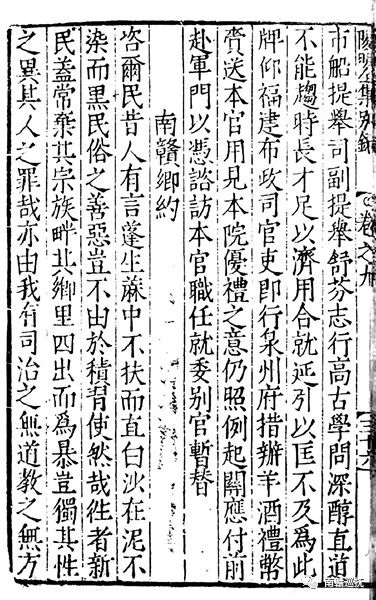 陽明集別錄 卷之九
市船提舉司副提舉舒芬志行高古學問深醇直道
不能趨時長才足以濟用合就延引以匡不及爲此
牌仰福建布政司官吏即行泉州府措辦羊酒禮幣
賫送本官用見本院優禮之意仍照例起關應付前
赴軍門以憑諮訪本官職任就委別官暫替
南贛鄉約
咨爾民昔人有言蓬生蔴中不扶而直白沙在泥不
染而黑民俗之善惡豈不由於積習使然哉往者新
民蓋常棄其宗族畔其鄉里四出而爲暴豈獨其性
之異其人之罪哉亦由我有司治之無道教之無方